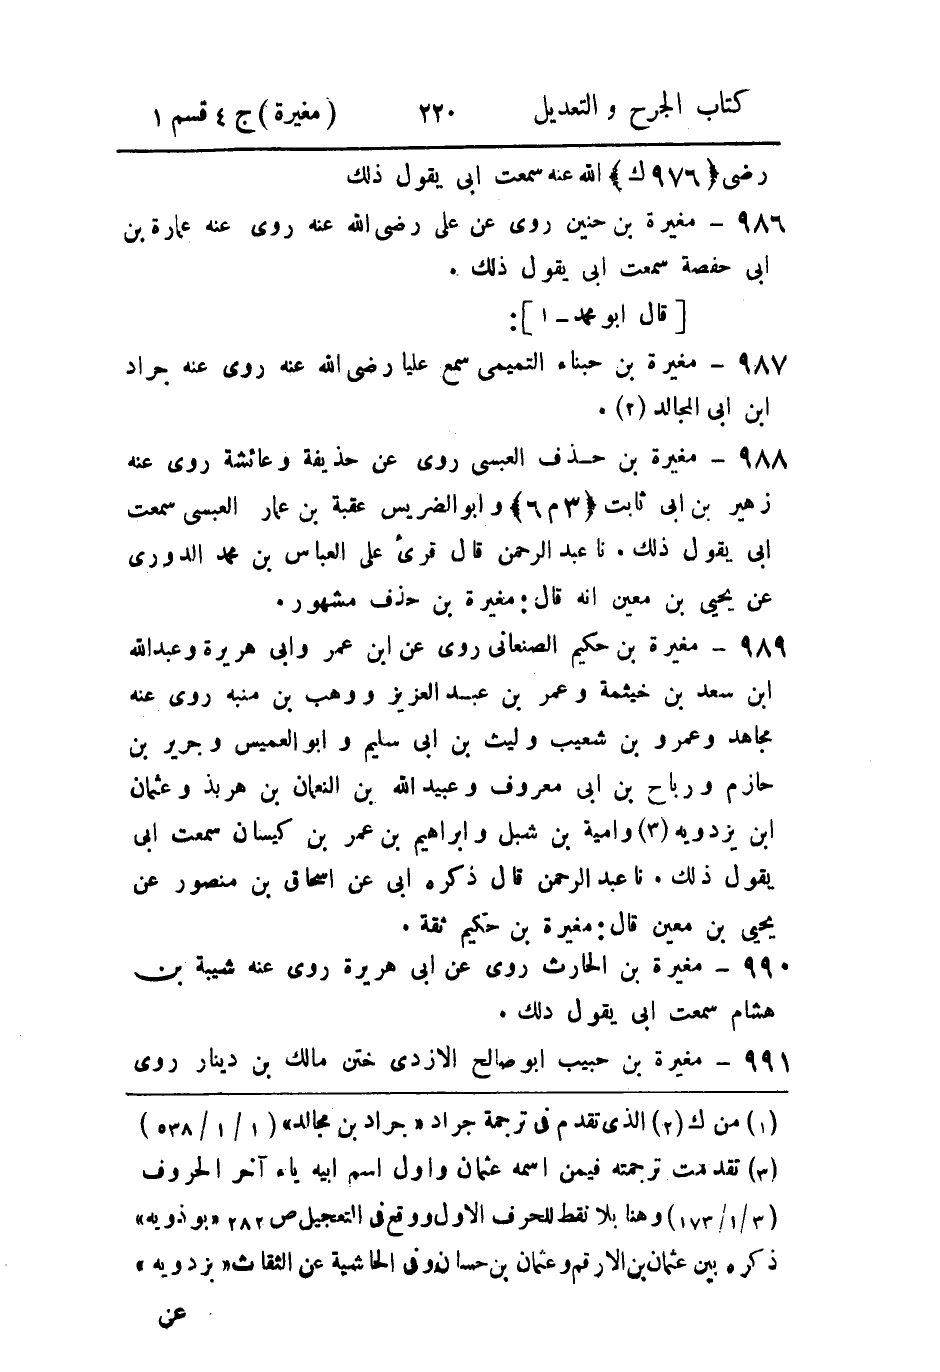 كتاب الجرح و التعديل ٢٢٠ ( مغيرة ) ج ٤ قسم ١
رضى ﴿ ٩٧٦ ك ﴾ الله عنه سمعت ابى يقول ذلك
٩٨٦ – مغيرة بن حنين روى عن على رضى الله عنه روى عنه عمارة بن
ابى حفصة سمعت ابى يقول ذلك .
[ قال ابو محمد – ١ ] :
٩٨٧ – مغيرة بن حبناء التميمى سمع عليا رضى الله عنه روى عنه جراد
ابن ابى المجالد (٢) .
٩٨٨ – مغيرة بن حـذف العبسى روى عن حذيفة و عائشة روى عنه
زهير بن ابى ثابت ﴿ ٣ م ٦ ﴾ و ابو الضريس عقبة بن عمار العبسى سمعت
ابى يقول ذلك . نا عبد الرحمن قال قرئ على العباس بن محمد الدورى
عن يحيى بن معين انه قال : مغيرة بن حذف مشهور .
٩٨٩ – مغيرة بن حكيم الصنعانى روى عن ابن عمر وابى هريرة و عبدالله
ابن سعد بن خيثمة و عمر بن عبـد العزيز و وهب بن منبه روى عنه
مجاهد و عمرو بن شعيب و ليث بن ابى سليم و ابو العميس و جرير بن
حازم و رباح بن ابى معروف و عبيد الله بن النعمان بن هربذ و عثمان
ابن يزدويه (٣) و امية بن شبل و ابراهيم بن عمر بن كيسان سمعت ابى
يقول ذلك . نا عبد الرحمن قال ذكره ابى عن اسحاق بن منصور عن
يحيى بن معين قال : مغيرة بن حكيم ثقة .
٩٩٠ – مغيرة بن الحارث روى عن ابى هريرة روى عنه شيبة بن
هشام سمعت ابى يقول دلك .
٩٩١ – مغيرة بن حبيب ابو صالح الازدى ختن مالك بن دينار روى
(١) من ك (٢) الذى تقدم فى ترجمة جراد « جراد بن مجالد» (١ / ١ / ٥٣٨ )
(٣) تقدمت ترجمته فيمن اسمه عثمان و اول اسم ابيه ياء آخر الحروف
(٣ /١ /١٧٣) و هنا بلا نقط للحرف الاول و وقع فى التعجيل ص ٢٨٢ «بوذويه»
ذكره بين عثمان بن الارقم و عثمان بن حسان و فى الحاشية عن الثقات « يزدويه »
عن